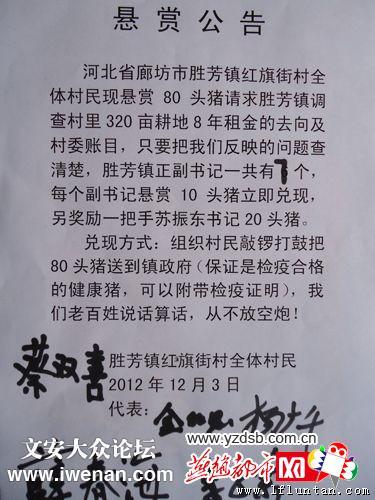 悬赏公告
河北省廊坊市胜芳镇红旗街村全
体村民现悬赏 80 头猪请求胜芳镇调
查村里 320 亩耕地 8 年租金的去向及
村委账目，只要把我们反映的问题查
清楚，胜芳镇正副书记一共有7个，
每个副书记悬赏 10 头猪立即兑现，
另奖励一把手苏振东书记 20 头猪。
兑现方式：组织村民敲锣打鼓把
80 头猪送到镇政府（保证是检疫合格
的健康猪，可以附带检疫证明），我
们老百姓说话算话，从不放空炮！
蔡双喜
胜芳镇红旗街村全体村民
2012 年 12 月 3 日
代表：
文安大众论坛
www.iwenan.com
www.yzdsb.com.cn
燕赵都市网
www.lfluntan.com